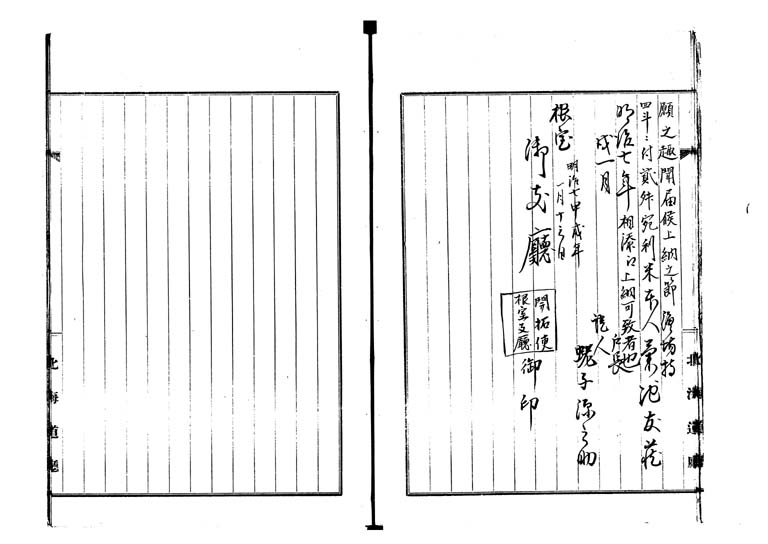 願之趣聞届候上納之節 濱場持
四斗ニ付貳舛宛利米 本人 菊池友蔵
明治七年 相添江上納可致者也
戌一月
戸長
證人
蛯子源之助
明治七甲戌年
一月十三日
根室
御支廳
開拓使
根室支廳
御印
北海道廳
北海道廳